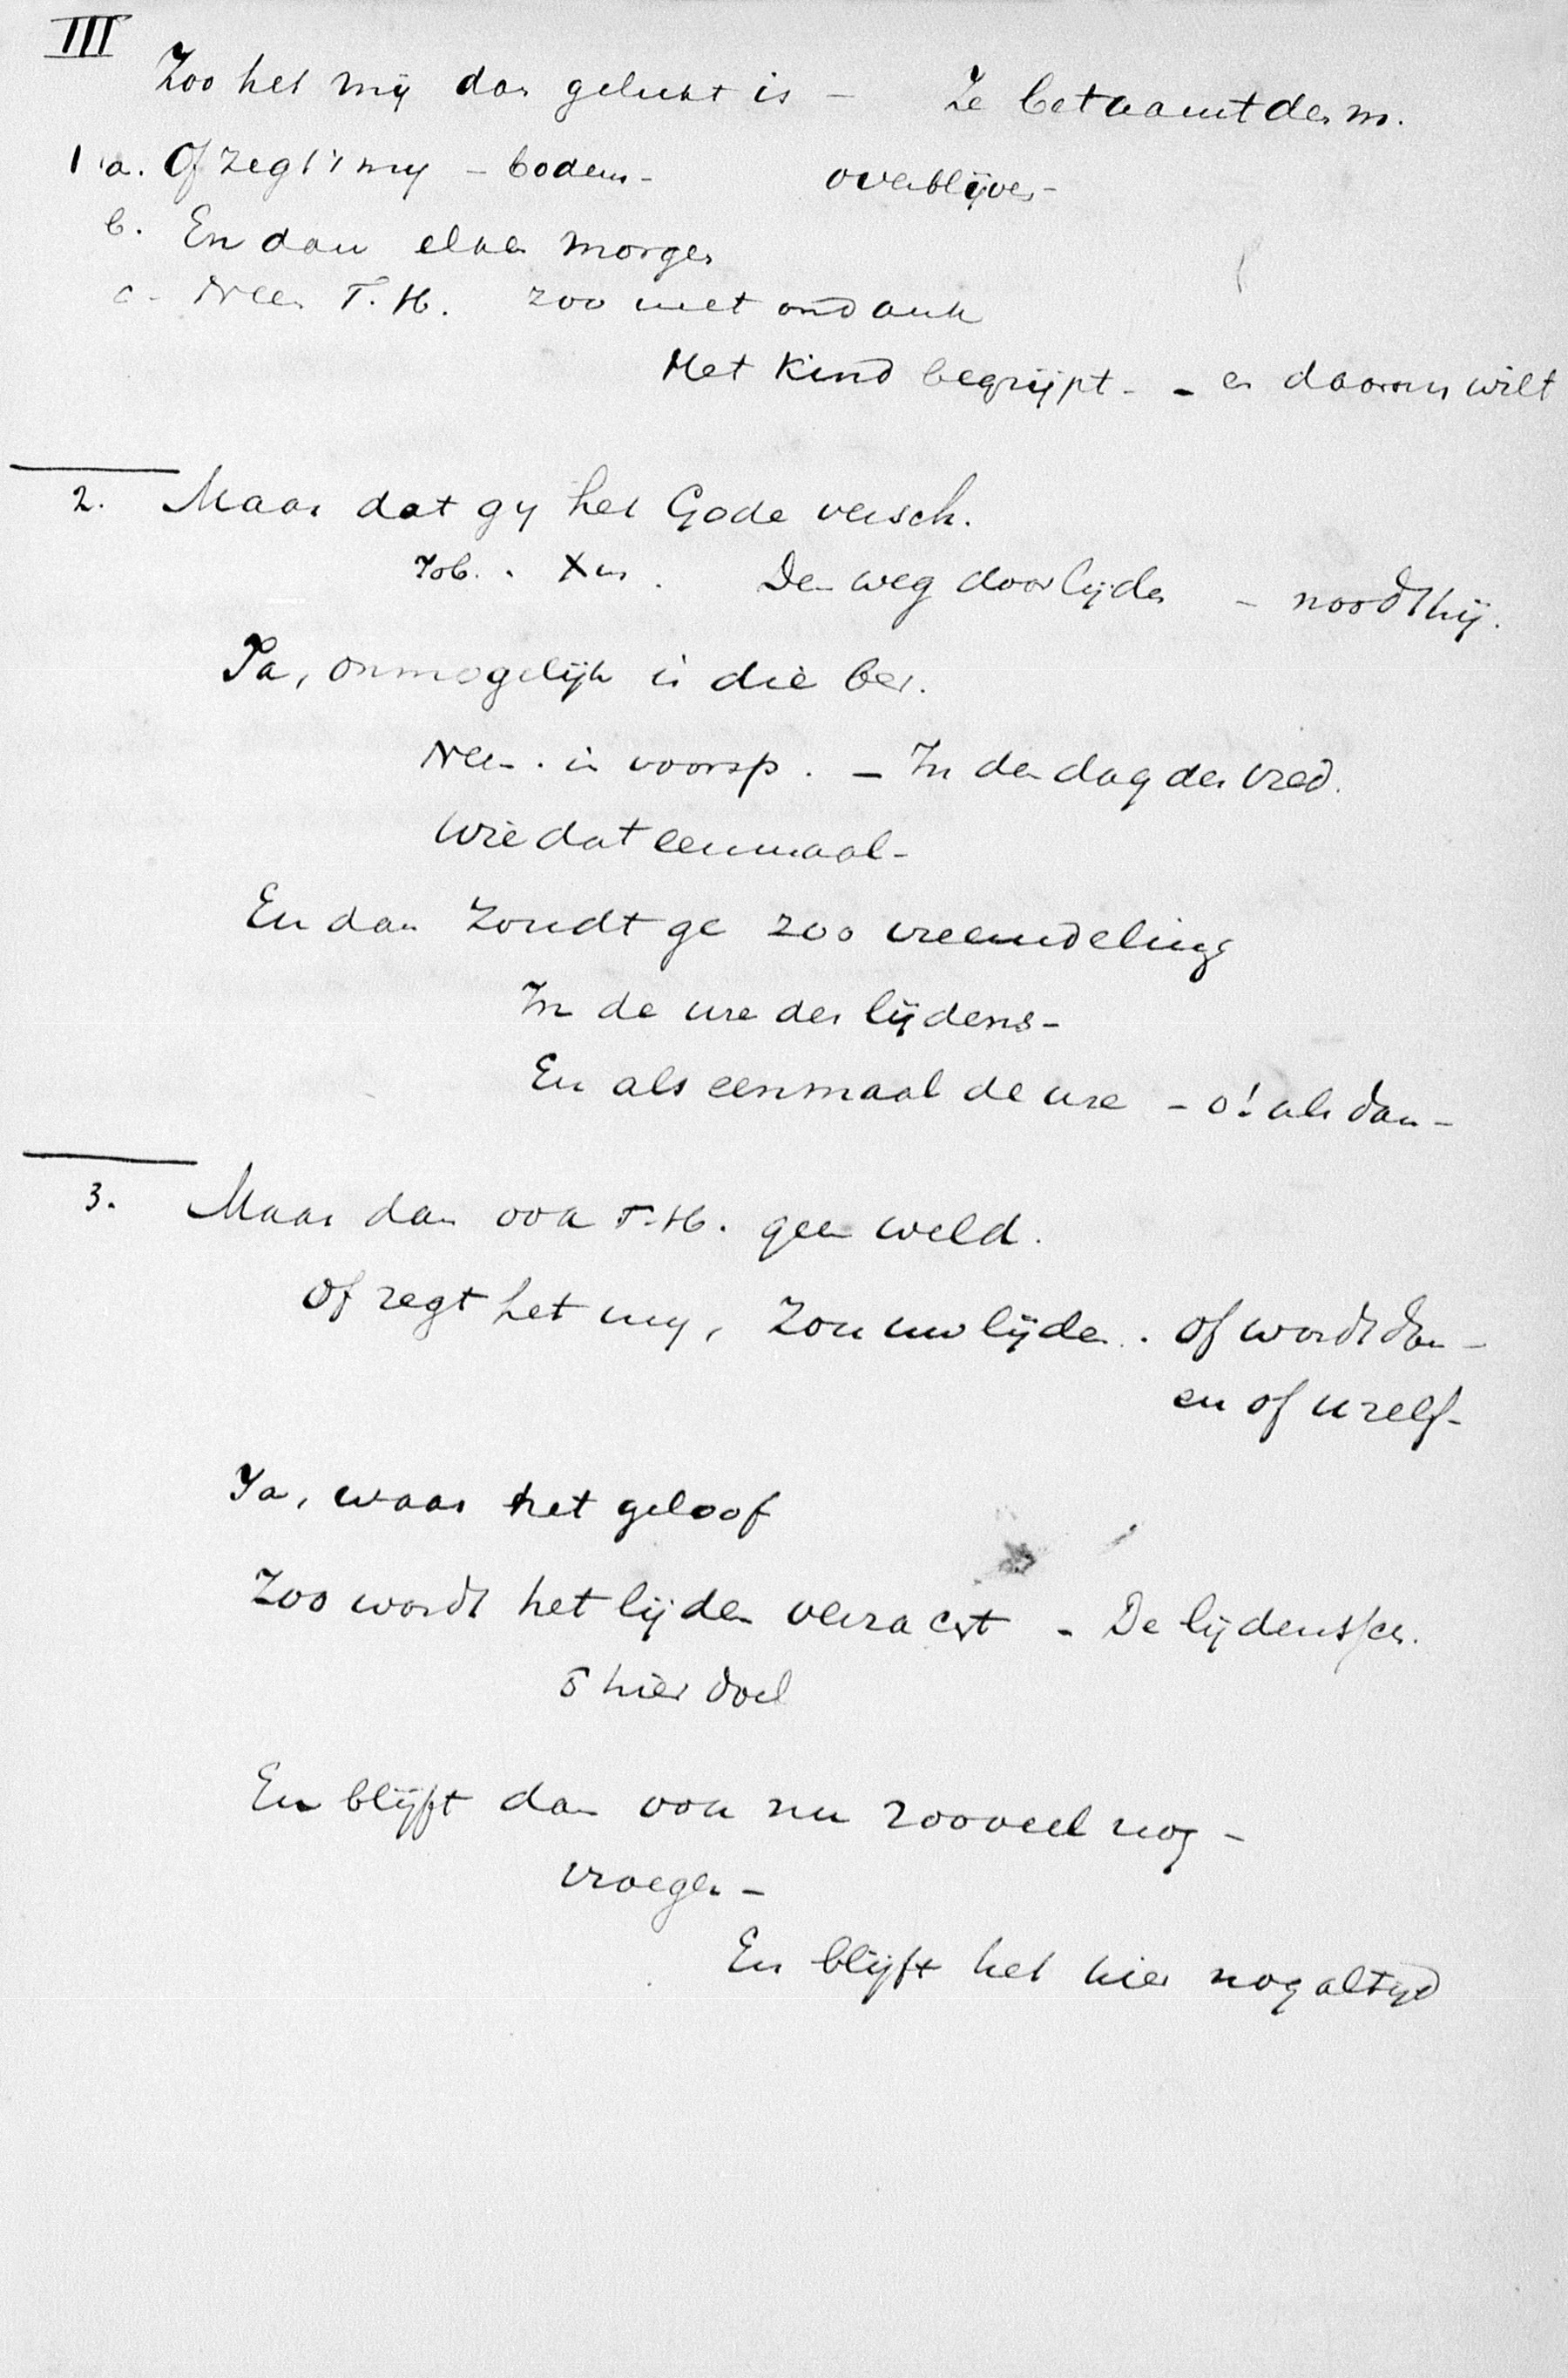 III
Zoo het mij dan gelukt is – Ze betaamt den m.
1 a. Of zegt 't my – bodem – overblijven –
b. En dan elken morgen
c – Neen T. H. zoo niet ondank
Het Kind begrijpt – – en daarom wilt
2. Maar dat gy het Gode versch.
Job. . Xus . Den weg door lijden – noodt hij.
Ja, onmogelijk is die ber.
Neen – . in voorsp. – In den dag der vred.
Wie dat eenmaal –
En dan zoudt ge zoo vreemdeling
In de ure des lijdens –
En als eenmaal de ure – o! als dan –
3. Maar dan ook T. H. geen weld.
Of zegt het my, Zou uw lijden . Of wordt dan –
en of uzelf –
Ja, waar het geloof
Zoo wordt het lijden verzacht – De lijdens
hier doel
En blijft dan ook nu zooveel nog –
vroegen –
En blijft het hier nog altyd